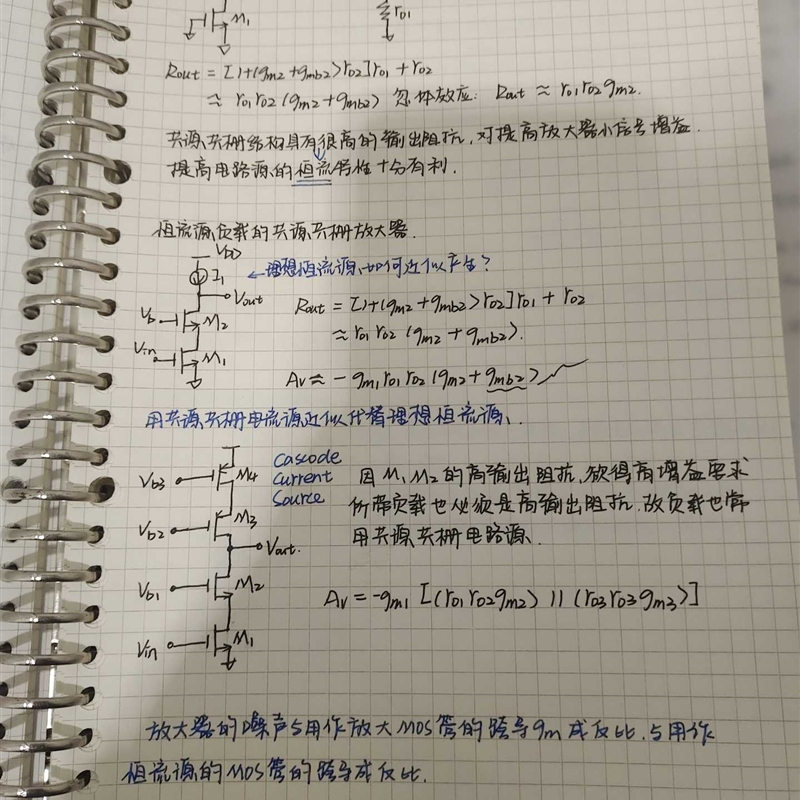 M₁
r01
Rout = [1+(gm2+gmb2)r02]r01 + r02
≈ r01r02(gm2+gmb2) 忽体效应: Rout ≈ r01r02gm2.
共源共栅结构具有很高的输出阻抗,对提高放大器小信号增益.
提高电路源的恒流特性十分有利.
恒流源负载的共源共栅放大器.
VDD
I₁ ←理想恒流源如何近似产生?
Vout
Rout = [1+(gm2+gmb2)r02]r01 + r02
Vb M₂
≈ r01r02(gm2+gmb2).
Vin M₁
Av ≈ -gm1r01r02(gm2+gmb2)
用共源共栅电流源近似代替理想恒流源.
Vb3 M4
Cascode
Current
Source
因M₁M₂的高输出阻抗,欲得高增益要求
所带负载也必须是高输出阻抗.故负载也常
用共源共栅电路源.
Vb2 M3
Vout.
Vb1 M2
Av = -gm1[(r01r02gm2)||(r03r03gm3)]
Vin M₁
放大器的噪声与用作放大MOS管的跨导gm成反比.与用作
恒流源的MOS管的跨导成反比.